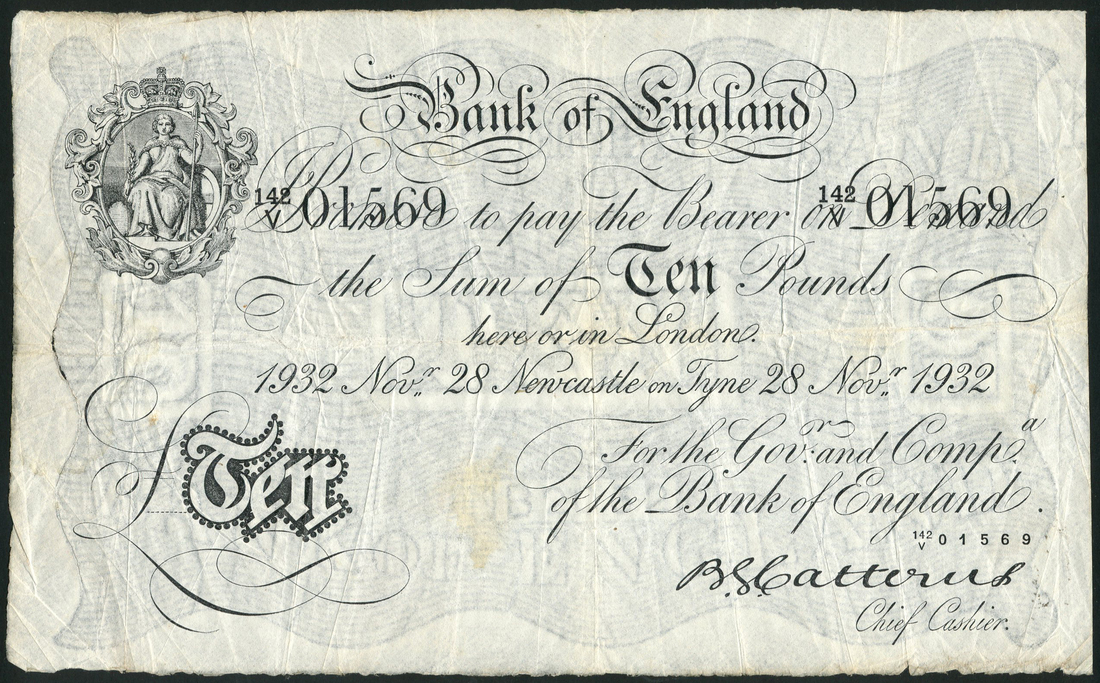 Bank of England
142/V 01569 142/V 01569
I Promise to pay the Bearer on Demand
the Sum of Ten Pounds
here or in London.
1932 Novr. 28 Newcastle on Tyne 28 Novr. 1932
For the Govr. and Compa.
of the Bank of England.
£Ten
142/V 01569
B.G. Catterns
Chief Cashier.